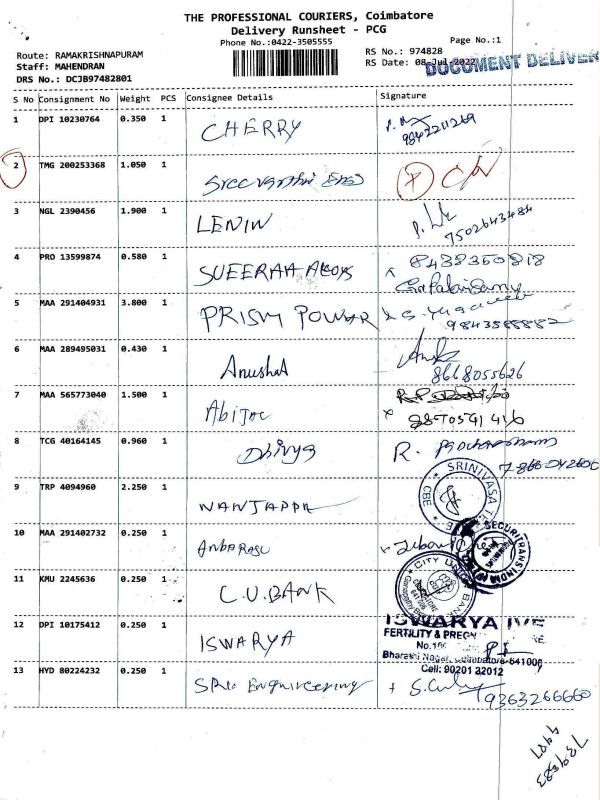 THE PROFESSIONAL COURIERS, Coimbatore
Delivery Runsheet - PCG
Phone No.:0422-3505555
Page No.:1
Route: RAMAKRISHNAPURAM
RS No.: 974828
Staff: MAHENDRAN
RS Date: 08-Jul-2022
DOCUMENT DELIVER
DRS No.: DCJB97482801
S No Consignment No Weight PCS Consignee Details Signature
1 DPI 10230764 0.350 1 CHERRY
9842211269
2 TMG 200253368 1.050 1
3 NGL 2390456 1.900 1 LENIN
7502643484
4 PRO 13599874 0.580 1 8438350818
5 MAA 291404931 3.800 1 PRISM POWER
9843588882
6 MAA 289495031 0.430 1 Anushat
8668055626
7 MAA 565773040 1.500 1
8 TCG 40164145 0.960 1 Dhivya R.
9 TRP 4094960 2.250 1 NANJAPPA SRINIVASA CBE
10 MAA 291402732 0.250 1 ANBARASU SECURITRANS INDIA
11 KMU 2245636 0.250 1 C.U.BANK CITY BANK
12 DPI 10175412 0.250 1 ISWARYA ISWARYA IVF
FERTILITY & PREGN
Bharathi Nagar, Coimbatore-641006
Cell: 90201 22012
13 HYD 80224232 0.250 1 SRI Engineering
9363266660